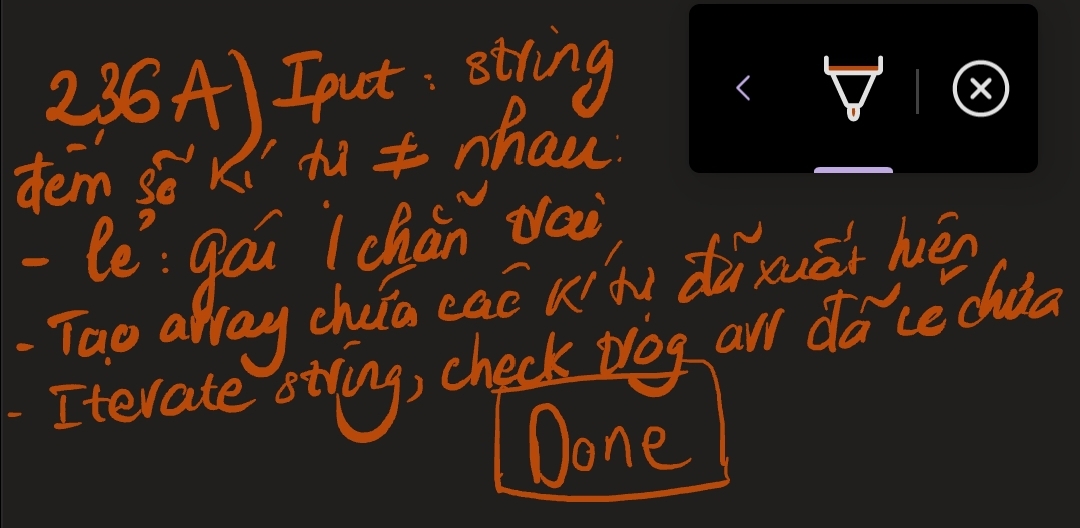 236A) Iput : string
đếm số kí tự ≠ nhau:
- lẻ : gái | chẵn trai
- Tạo array chứa các kí tự đã xuất hiện
- Iterate string, check trog arr đã có chưa
Done